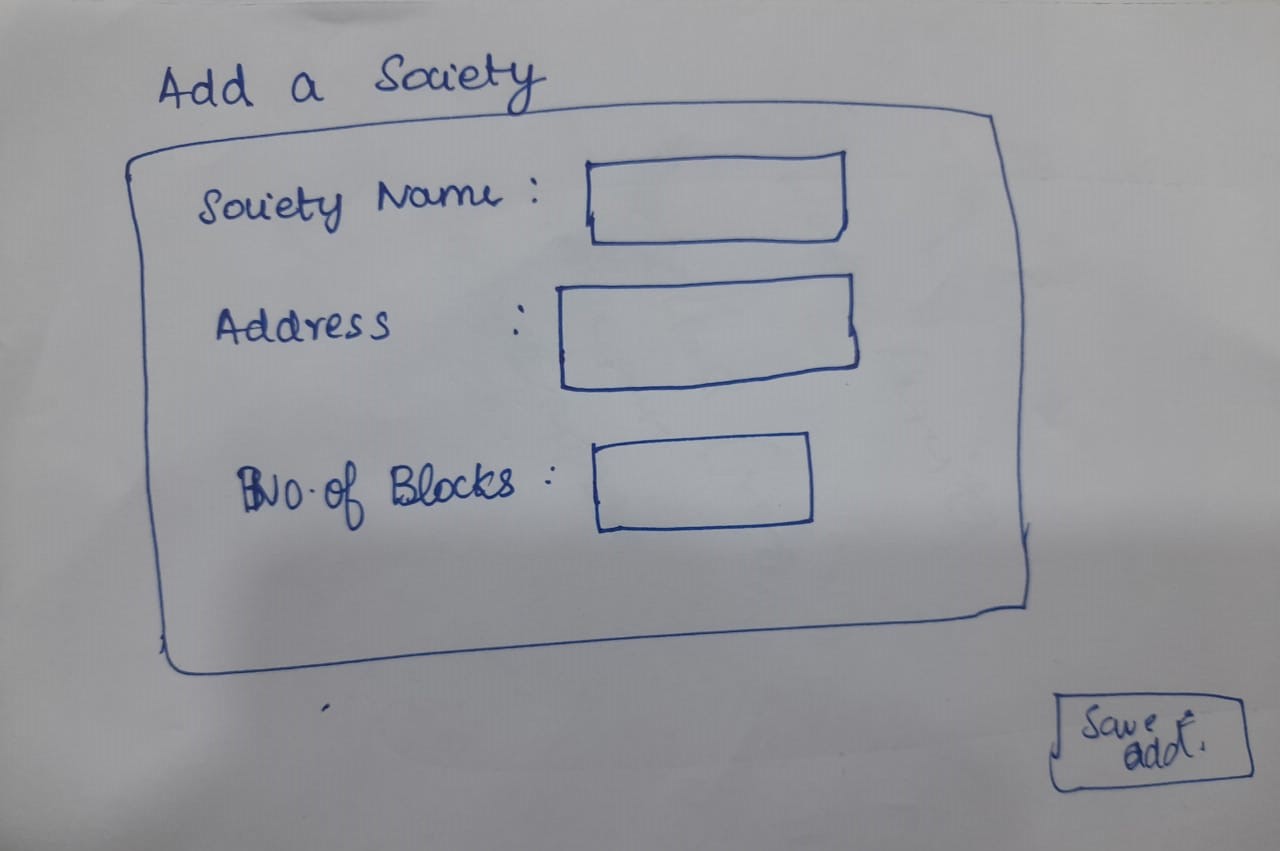 Add a Society
Society Name :
Address :
No. of Blocks :
Save &
add.